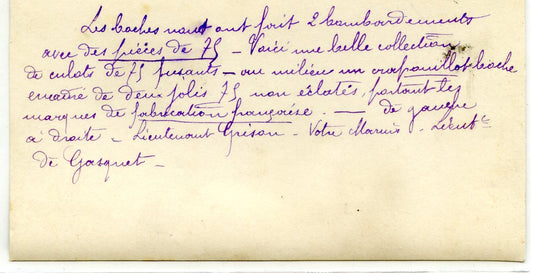 Les boches nous ont fait 2 bombardements
avec des pièces de 75 - Voici une belle collection
de culots de 75 fusants - au milieu un crapouillot boche
encadré de deux jolis 75 non éclatés, portant les
marques de fabrication française. — de gauche
à droite - Lieutenant Grison - Votre Marius - Lieut
de Gasquet -